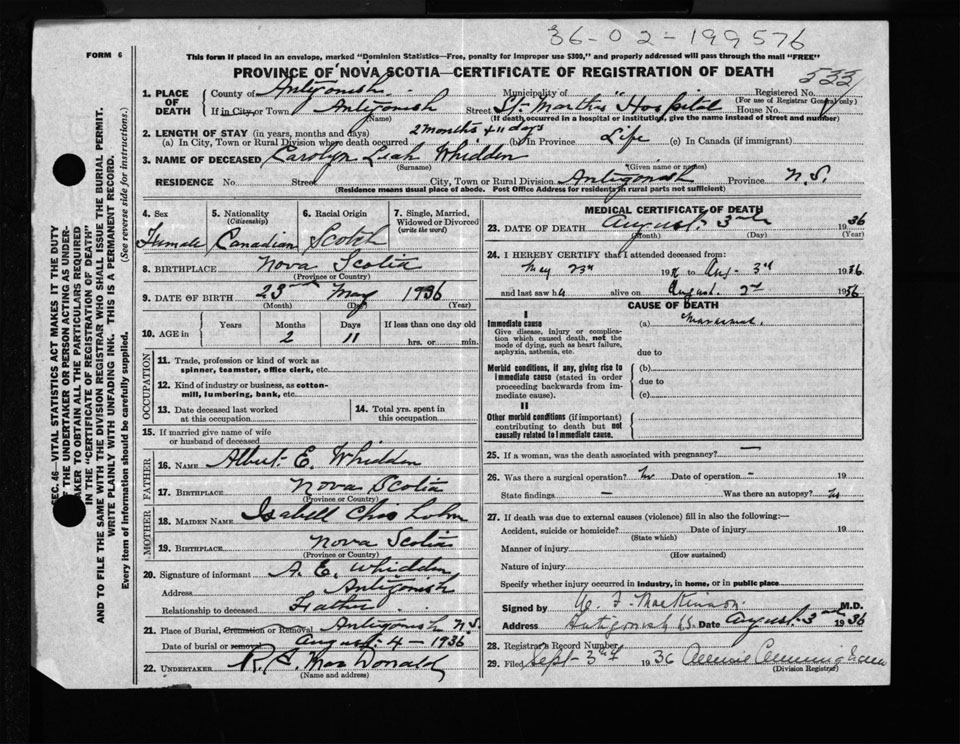 36-02-199576
FORM 6
This form if placed in an envelope, marked "Dominion Statistics—Free, penalty for improper use $300," and properly addressed will pass through the mail "FREE"
PROVINCE OF NOVA SCOTIA—CERTIFICATE OF REGISTRATION OF DEATH
533
1. PLACE OF DEATH
County of Antigonish Municipality of Registered No.
(For use of Registrar General only)
If in City or Town Antigonish Street St. Martha's Hospital House No.
(Name) (If death occurred in a hospital or institution, give the name instead of street and number)
2. LENGTH OF STAY (in years, months and days)
(a) In City, Town or Rural Division where death occurred 2 months + 11 days (b) in Province Life (c) In Canada (if immigrant)
3. NAME OF DECEASED Carolyn Leah Whidden
(Surname) (Given name or names)
RESIDENCE No. Street City, Town or Rural Division Antigonish Province N.S.
(Residence means usual place of abode. Post Office Address for residents in rural parts not sufficient)
4. Sex 5. Nationality (Citizenship) 6. Racial Origin 7. Single, Married, Widowed or Divorced (write the word)
Female Canadian Scotch
8. BIRTHPLACE Nova Scotia
(Province or Country)
9. DATE OF BIRTH 23rd May 1936
(Month) (Day) (Year)
10. AGE in Years Months Days If less than one day old
2 11 hrs. or min.
OCCUPATION
11. Trade, profession or kind of work as spinner, teamster, office clerk, etc.
12. Kind of industry or business, as cotton-mill, lumbering, bank, etc.
13. Date deceased last worked at this occupation
14. Total yrs. spent in this occupation
15. If married give name of wife or husband of deceased
FATHER
16. NAME Albert E. Whidden
17. BIRTHPLACE Nova Scotia
(Province or Country)
MOTHER
18. MAIDEN NAME Isabell
19. BIRTHPLACE Nova Scotia
(Province or Country)
20. Signature of informant A. E. Whidden
Address Antigonish
Relationship to deceased Father
21. Place of Burial, Cremation or Removal Antigonish N.S.
Date of burial or removal August 4 - 1936
22. UNDERTAKER R. MacDonald
(Name and address)
MEDICAL CERTIFICATE OF DEATH
23. DATE OF DEATH August 3rd 1936
(Month) (Day) (Year)
24. I HEREBY CERTIFY that I attended deceased from:
May 23rd 19 to Aug - 3rd 1936
and last saw h alive on August 2nd 1936
CAUSE OF DEATH
I
Immediate cause (a) Marasmus
Give disease, injury or complication which caused death, not the mode of dying, such as heart failure, asphyxia, asthenia, etc.
due to
Morbid conditions, if any, giving rise to immediate cause (stated in order proceeding backwards from immediate cause).
(b)
due to
(c)
II
Other morbid conditions (if important) contributing to death but not causally related to immediate cause.
25. If a woman, was the death associated with pregnancy? —
26. Was there a surgical operation? No Date of operation - 19
State findings — Was there an autopsy? No
27. If death was due to external causes (violence) fill in also the following:—
Accident, suicide or homicide? Date of injury 19
(State which)
Manner of injury
(How sustained)
Nature of injury
Specify whether injury occurred in industry, in home, or in public place
Signed by F. MacKinnon M.D.
Address Antigonish N.S. Date August 3rd 1936
28. Registrar's Record Number
29. Filed Sept 3rd 1936
(Division Registrar)
SEC. 46—VITAL STATISTICS ACT MAKES IT THE DUTY OF THE UNDERTAKER OR PERSON ACTING AS UNDERTAKER TO OBTAIN ALL THE PARTICULARS REQUIRED IN THE "CERTIFICATE OF REGISTRATION OF DEATH"
AND TO FILE THE SAME WITH THE DIVISION REGISTRAR WHO SHALL ISSUE THE BURIAL PERMIT.
WRITE PLAINLY WITH UNFADING INK. THIS IS A PERMANENT RECORD.
Every item of information should be carefully supplied. (See reverse side for instructions.)